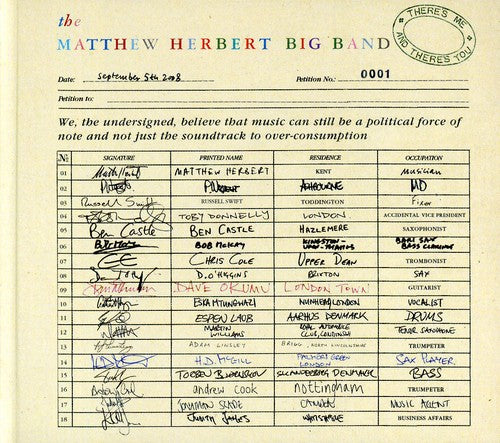 the
MATTHEW HERBERT BIG BAND
THERE'S ME AND THERE'S YOU
Date: September 5th 2008 Petition No.: 0001
Petition to:
We, the undersigned, believe that music can still be a political force of
note and not just the soundtrack to over-consumption
No SIGNATURE PRINTED NAME RESIDENCE OCCUPATION
01 MATTHEW HERBERT KENT MUSICIAN
02 ASHBOURNE MD
03 Russell Swift RUSSELL SWIFT TODDINGTON Fixer
04 TOBY DONNELLY LONDON ACCIDENTAL VICE PRESIDENT
05 Ben Castle BEN CASTLE HAZLEMERE SAXOPHONIST
06 BOB McKAY KINGSTON-UPON-THAMES BARI SAX BASS CLARINET
07 CHRIS COLE UPPER DEAN TROMBONIST
08 D. O'HIGGINS BRIXTON SAX
09 DAVE OKUMU LONDON TOWN GUITARIST
10 ESKA MTUNGWAZI NUNHEAD, LONDON VOCALIST
11 ESPEN LAUB AARHUS DENMARK DRUMS
12 MARTIN WILLIAMS TENOR SAXOPHONE
13 ADAM LINSLEY BRIGG, NORTH LINCOLNSHIRE TRUMPETER
14 H.D. McGILL PALMERS GREEN LONDON SAX PLAYER
15 SKANDERBORG DENMARK BASS
16 andrew cook nottingham TRUMPETER
17 JONATHAN SLADE MUSIC AGENT
18 JUDITH JAMES WHITSTABLE BUSINESS AFFAIRS